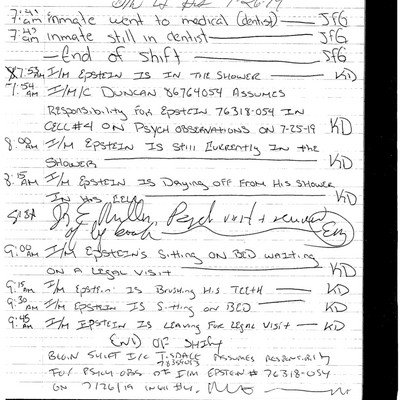 7:40 am inmate went to medical (dentist) JFG
7:45 am inmate still in dentist JFG
End of Shift JFG
7:53 AM I/M EPSTEIN IS IN THE SHOWER KD
7:54 AM I/M/C DUNCAN 86764054 ASSUMES
RESPONSIBILITY FOR EPSTEIN 76318-054 IN
CELL #4 ON PSYCH OBSERVATIONS ON 7-25-19 KD
8:00 AM I/M EPSTEIN IS STILL CURRENTLY IN THE
SHOWER KD
8:15 AM I/M EPSTEIN IS DRYING OFF FROM HIS SHOWER
IN HIS CELL KD
Dr. E. Miller, Psych visit + review
of log book EM
9:00 AM I/M EPSTEIN'S SITTING ON BED WAITING
ON A LEGAL VISIT KD
9:15 AM I/M EPSTEIN IS BRUSHING HIS TEETH KD
9:30 AM I/M EPSTEIN IS SITTING ON BED KD
9:45 AM I/M EPSTEIN IS LEAVING FOR LEGAL VISIT KD
END OF SHIFT
BEGIN SHIFT I/C ASSUMES RESPONSIBILITY
FOR PSYCH OBS OF I/M EPSTEIN # 76318-054
ON 7/26/19 IN CELL #4.